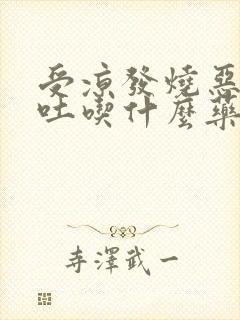 受凉發燒惡
吐喫什麼藥
寺澤武一